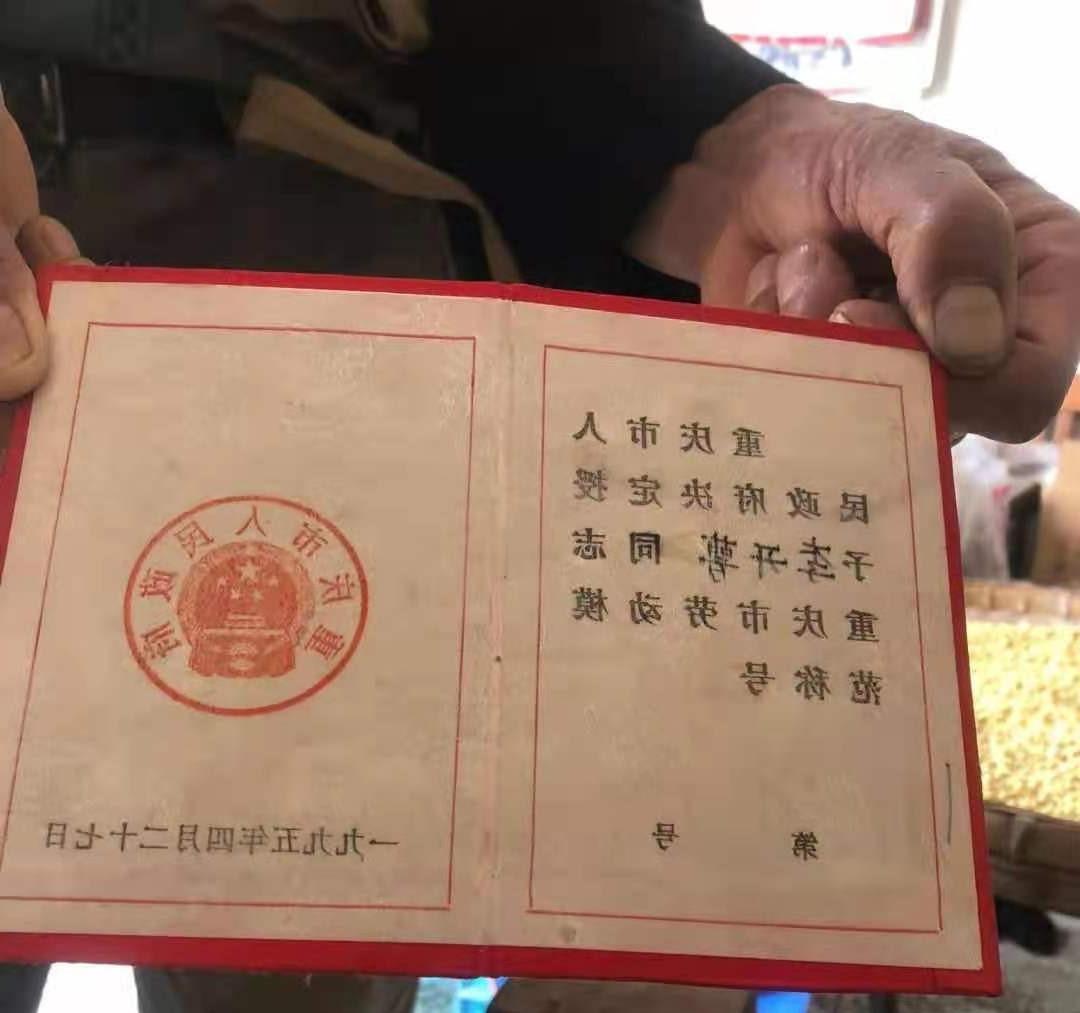 重庆市人
民政府决定授
予李开 同志
重庆市劳动模
范称号
第 号
重庆市人民政府
一九九五年四月二十七日